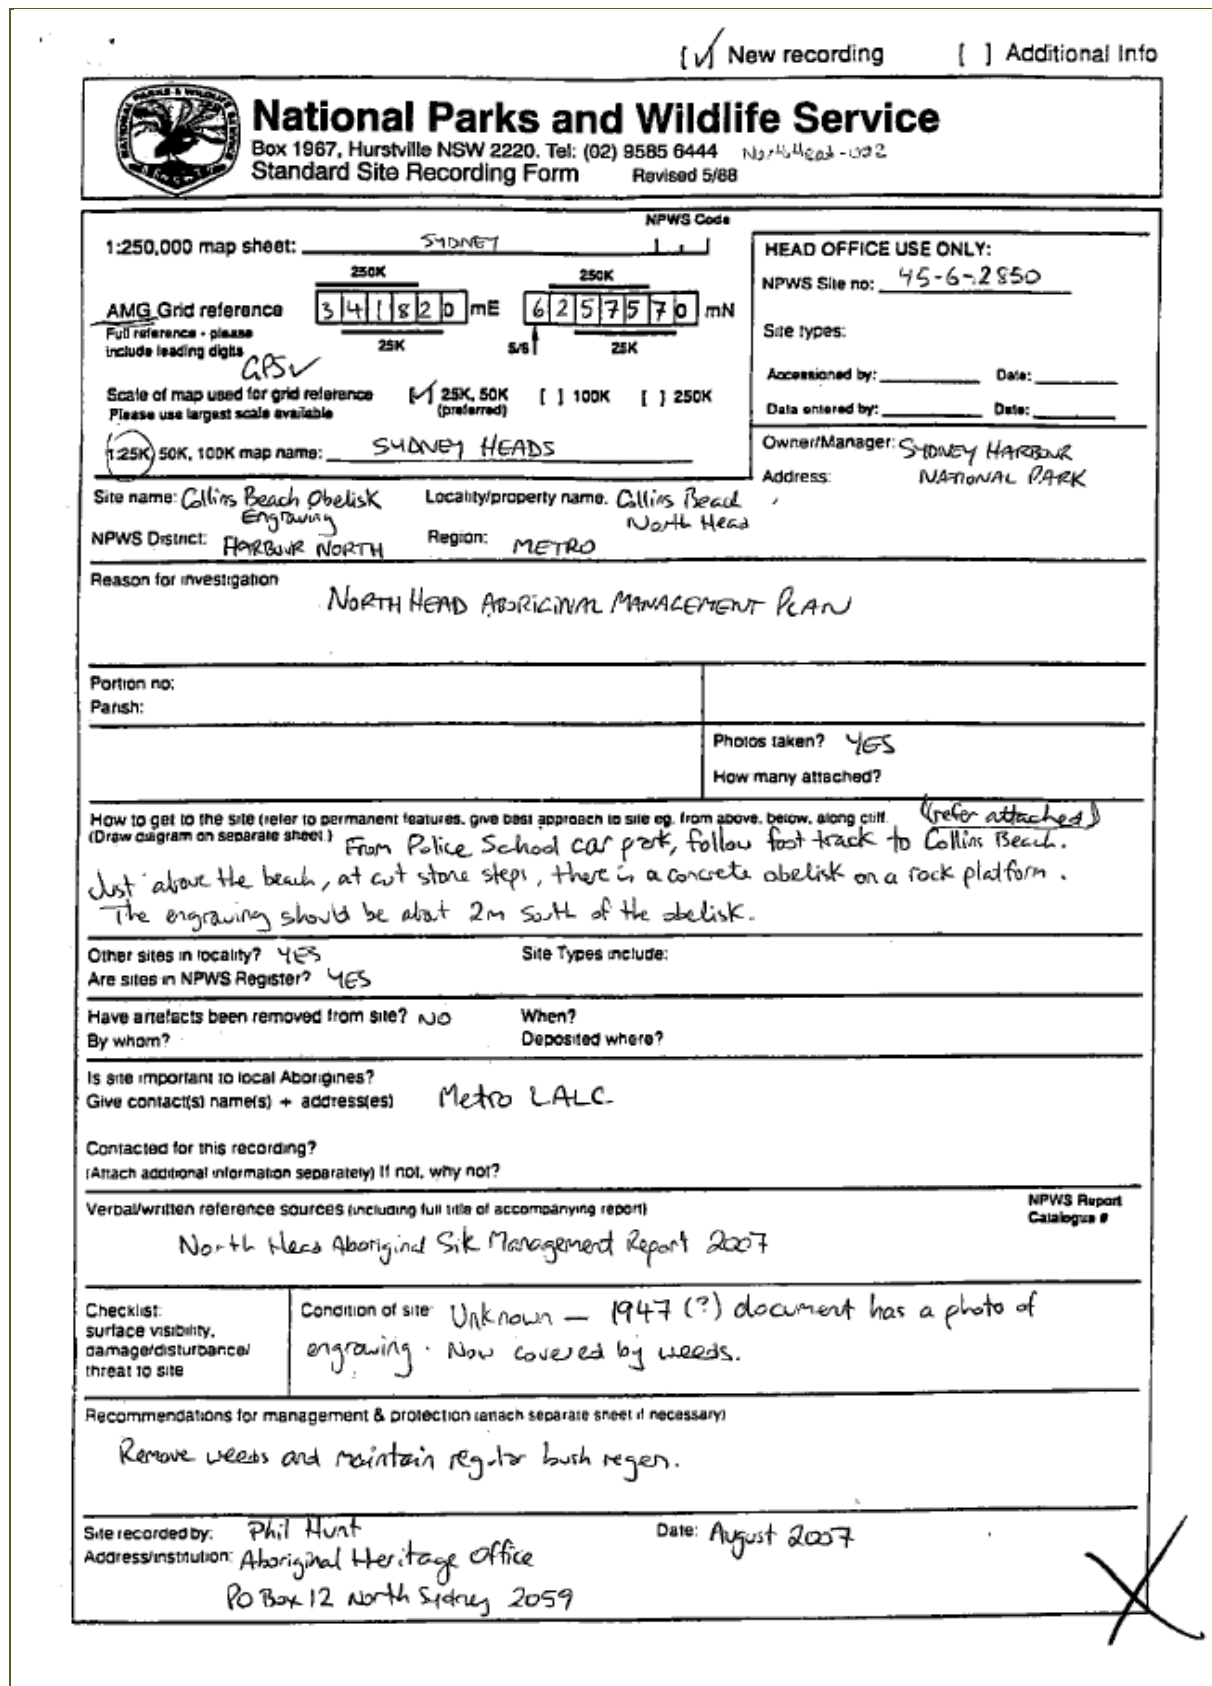 [✓] New recording [ ] Additional Info
NATIONAL PARKS & WILDLIFE SERVICE
National Parks and Wildlife Service
Box 1967, Hurstville NSW 2220. Tel: (02) 9585 6444 North Head-002
Standard Site Recording Form Revised 5/88
NPWS Code
1:250,000 map sheet: SYDNEY
HEAD OFFICE USE ONLY:
NPWS Site no: 45-6-2850
250K 250K
AMG Grid reference 341820 mE 6257570 mN
Full reference - please
include leading digits
25K 5/6 25K
Site types:
GPS ✓
Accessioned by: Date:
Scale of map used for grid reference [✓] 25K, 50K [ ] 100K [ ] 250K
Please use largest scale available (preferred)
Data entered by: Date:
1:25K, 50K, 100K map name: SYDNEY HEADS
Owner/Manager: SYDNEY HARBOUR
Address: NATIONAL PARK
Site name: Collins Beach Obelisk
Engraving
Locality/property name. Collins Beach
North Head
NPWS District: HARBOUR NORTH Region: METRO
Reason for investigation
NORTH HEAD ABORIGINAL MANAGEMENT PLAN
Portion no:
Parish:
Photos taken? YES
How many attached?
How to get to the site (refer to permanent features, give best approach to site eg. from above, below, along cliff. (refer attached)
(Draw diagram on separate sheet.) From Police School car park, follow foot track to Collins Beach.
Just above the beach, at cut stone steps, there is a concrete obelisk on a rock platform.
The engraving should be about 2m south of the obelisk.
Other sites in locality? YES Site Types include:
Are sites in NPWS Register? YES
Have artefacts been removed from site? NO When?
By whom? Deposited where?
Is site important to local Aborigines?
Give contact(s) name(s) + address(es) Metro LALC
Contacted for this recording?
(Attach additional information separately) If not, why not?
Verbal/written reference sources (including full title of accompanying report)
NPWS Report
Catalogue #
North Head Aboriginal Site Management Report 2007
Checklist:
surface visibility,
damage/disturbance/
threat to site
Condition of site: Unknown — 1947 (?) document has a photo of
engraving. Now covered by weeds.
Recommendations for management & protection (attach separate sheet if necessary)
Remove weeds and maintain regular bush regen.
Site recorded by: Phil Hunt Date: August 2007
Address/institution: Aboriginal Heritage Office
PO Box 12 North Sydney 2059